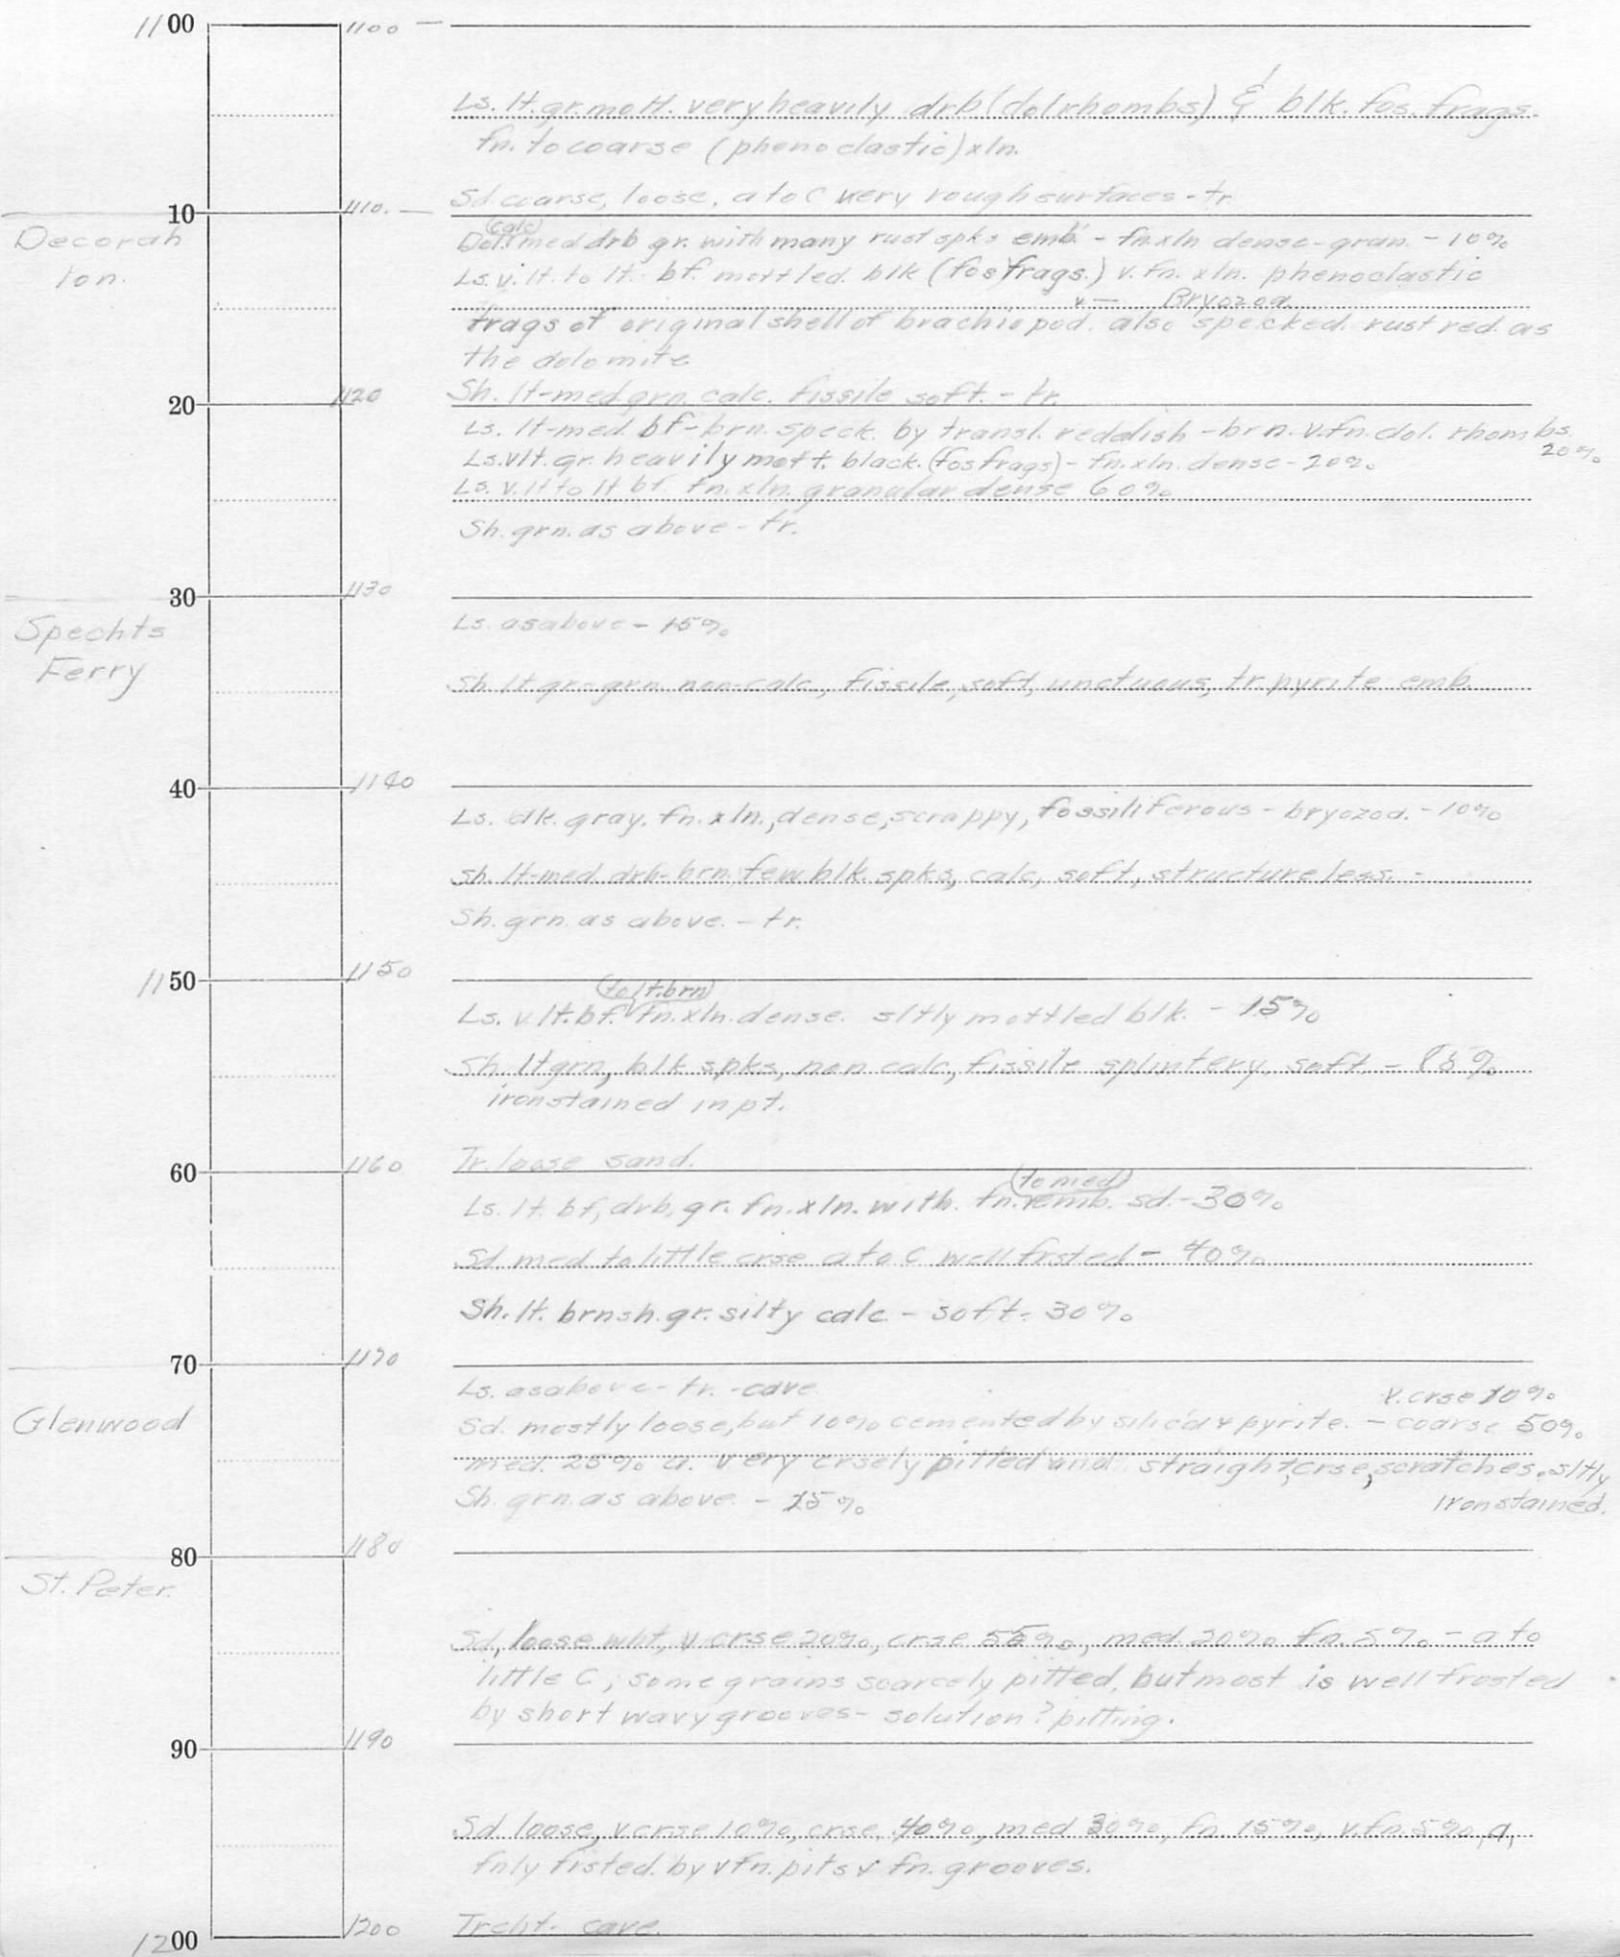 1100 1100 —
Ls. lt. gr. mott. very heavily drb (dol rhombs) & blk. fos. frags.
fn. to coarse (phenoclastic) xln.
Sd coarse, loose, a to c very rough surfaces - tr
10 1110. —
Decorah
Ion.
(calc)
Dol. med drb gr. with many rust spks emb - fn. xln dense-gran. - 10%
Ls. v. lt. to lt. bf. mottled. blk (fos frags.) v. fn. xln. phenoclastic
Bryozoa
frags of original shell of brachiopod. also specked. rust red. as
the dolomite
Sh. lt-med grn. calc. fissile soft. - tr.
20 1120
Ls. lt-med. bf-brn. speck. by transl. reddish-brn. v. fn. dol. rhombs
20%
Ls. v lt. gr. heavily mott. black. (fos frags) - fn. xln. dense - 20%
Ls. v. lt to lt bf. fn. xln. granular dense 60%
Sh. grn. as above - tr.
30 1130
Spechts
Ferry
Ls. as above - 15%
Sh. lt gr-grn non-calc, fissile, soft, unctuous, tr. pyrite emb.
40 1140
Ls. dk. gray. fn. xln., dense, scrappy, fossiliferous - bryozoa. - 10%
Sh. lt-med. drb-brn, few blk. spks, calc, soft, structureless. -
Sh. grn as above. - tr.
1150 1150
(to lt. brn)
Ls. v. lt. bf. fn. xln. dense. sltly mottled blk. - 15%
Sh. lt grn, blk spks, non calc, fissile splintery. soft. - 85%
iron stained in pt.
60 1160 Tr. loose sand.
(to med)
Ls. lt. bf, drb, gr. fn. xln. with. fn. emb. sd. - 30%
Sd. med to little crse a to c well frsted - 40%
Sh. lt. brnsh. gr. silty calc - soft - 30%
70 1170
Glenwood
Ls. as above - tr. - cave
v. crse 10%
Sd. mostly loose, but 10% cemented by silica & pyrite. - coarse 50%
med. 25% a. very crsely pitted and straight, crse, scratches. sltly
iron stained.
Sh. grn. as above. - 15%
80 1180
St. Peter.
Sd, loose wht, v. crse 20%, crse 55%, med. 20% fn. 5% - a to
little C; some grains scarcely pitted, but most is well frosted
by short wavy grooves - solution? pitting.
90 1190
Sd loose, v crse 10%, crse. 40%, med 30%, fn 15%, v. fn. 5%, a,
fnly frsted. by v fn. pits & fn. grooves.
1200 1200 Tr cht - cave.